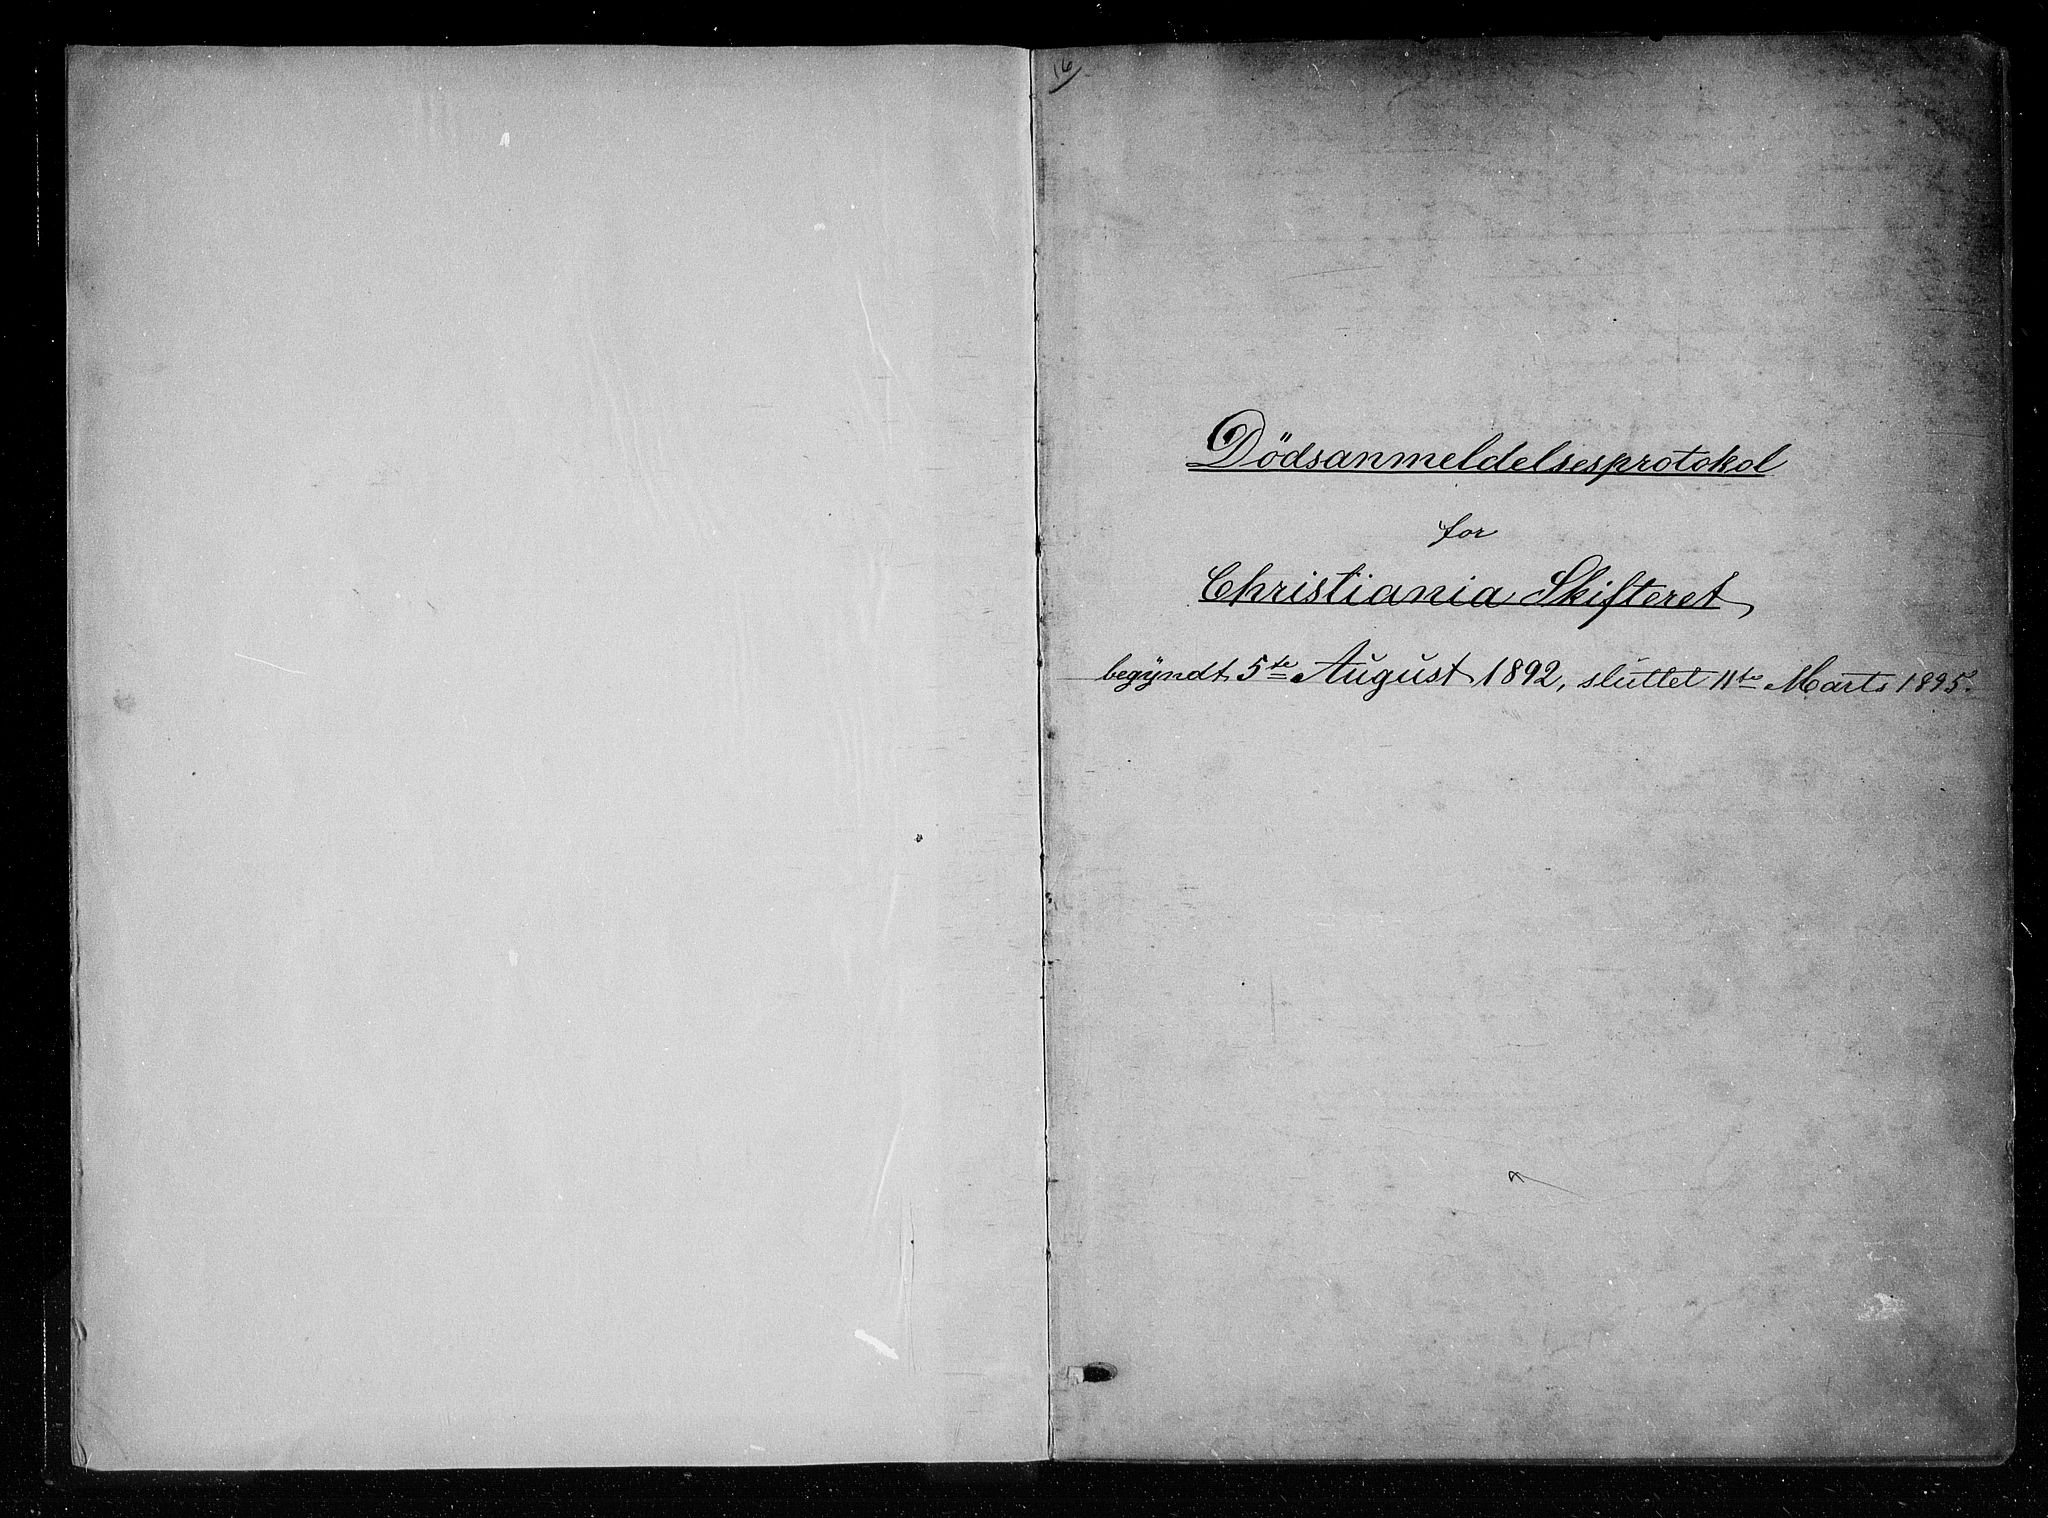 Dödsanmeldelsesprotokol
for
Christiania Skifteret
begyndt 5te August 1892, sluttet 11te Marts 1895.